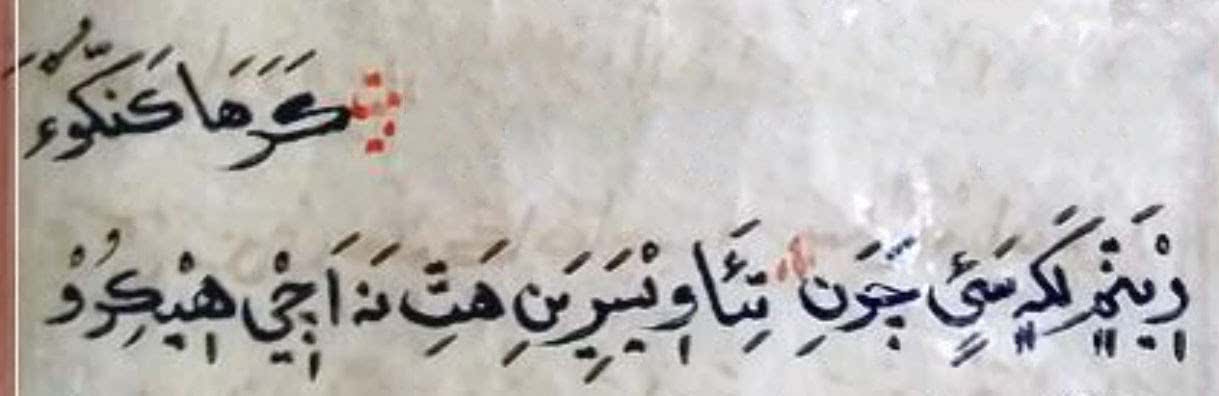 كَرَهَا كَنَكُّوءُ
وِيَنِمِ لَكہِ سَئِي جَوَنِ تِئَا وِيْسَرِيَنِ هَتِ نَہ اَچِيْ هِيْكِرُوْ